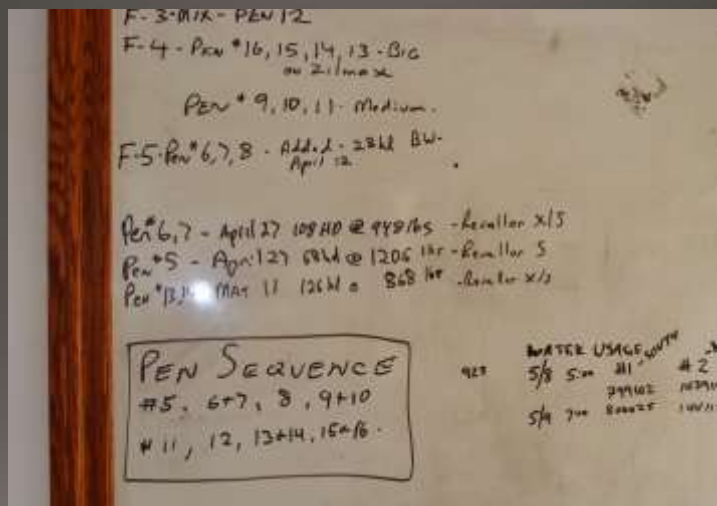 F-3-MIX - PEN 12
F-4 - PEN #16, 15, 14, 13 - BIG
on Zilmax
PEN # 9, 10, 11 - Medium.
F-5-PEN #6, 7, 8 - Added - 28hd BW-
April 12
Pen #6, 7 - April 27 108 HD @ 948 lbs - Revallor X/S
Pen #5 - April 27 68hd @ 1206 lbs - Revallor S
Pen #13, MAY 11 126 hd @ 868 lbs - Revallor X/S
PEN SEQUENCE
#5, 6+7, 8, 9+10
#11, 12, 13+14, 15+16.
WATER USAGE SOUTH
5/8 5:00 #1 #2
799602
5/9 7:00 800025